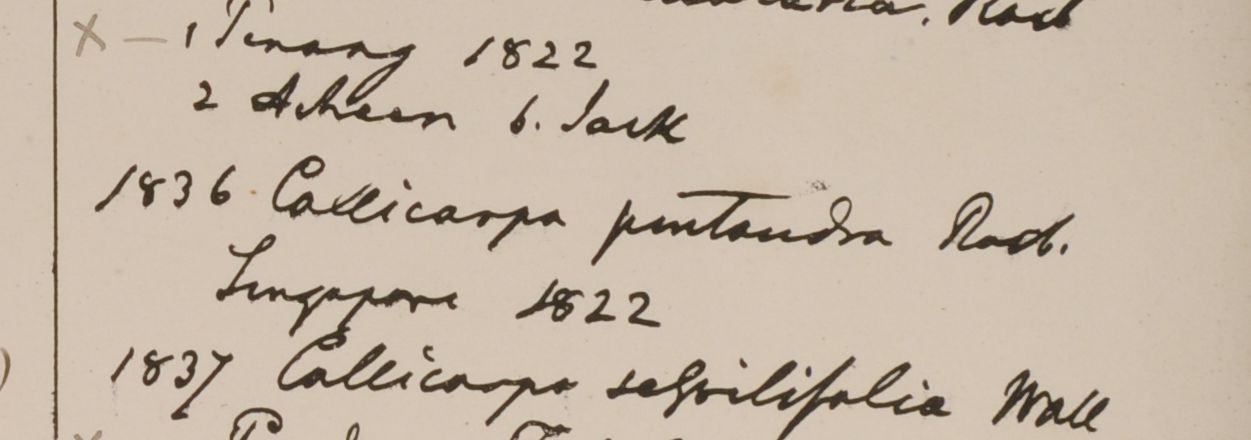 Roxb
x — 1 Pinang 1822
2 Acheen b. Jack
1836 Callicarpa pentandra Roxb.
Singapore 1822
1837 Callicarpa Wall